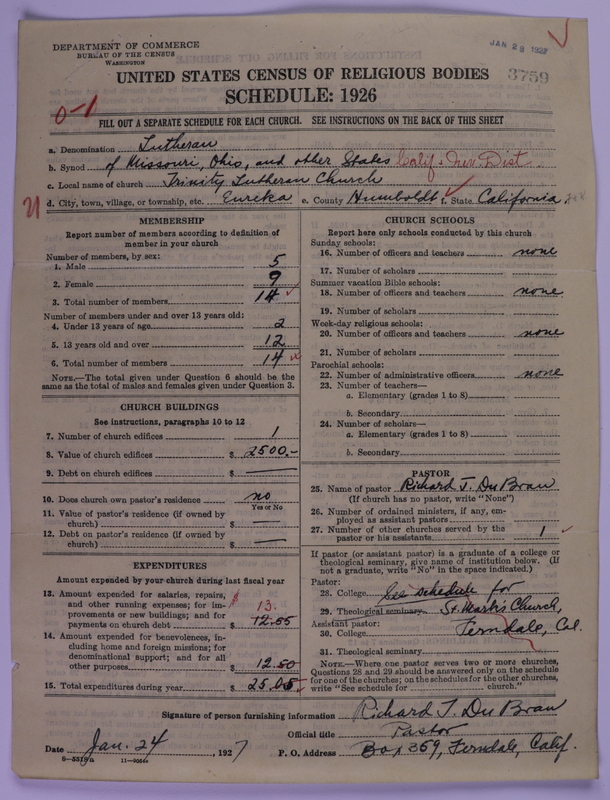 DEPARTMENT OF COMMERCE
BUREAU OF THE CENSUS
WASHINGTON
JAN 28 1927
UNITED STATES CENSUS OF RELIGIOUS BODIES
3759
SCHEDULE: 1926
0-1
FILL OUT A SEPARATE SCHEDULE FOR EACH CHURCH. SEE INSTRUCTIONS ON THE BACK OF THIS SHEET
a. Denomination Lutheran
b. Synod of Missouri, Ohio, and other States Calif. & Nev. Dist
c. Local name of church Trinity Lutheran Church
d. City, town, village, or township, etc. Eureka e. County Humboldt f. State California
MEMBERSHIP
Report number of members according to definition of member in your church
Number of members, by sex:
1. Male 5
2. Female 9
3. Total number of members 14
Number of members under and over 13 years old:
4. Under 13 years of age 2
5. 13 years old and over 12
6. Total number of members 14
NOTE.—The total given under Question 6 should be the
same as the total of males and females given under Question 3.
CHURCH BUILDINGS
See instructions, paragraphs 10 to 12
7. Number of church edifices 1
8. Value of church edifices $ 2500.-
9. Debt on church edifices $ —
10. Does church own pastor's residence no
Yes or No
11. Value of pastor's residence (if owned by
church) $ —
12. Debt on pastor's residence (if owned by
church) $ —
EXPENDITURES
Amount expended by your church during last fiscal year
13. Amount expended for salaries, repairs,
and other running expenses; for im-
provements or new buildings; and for
payments on church debt $ 13. 12.55
14. Amount expended for benevolences, in-
cluding home and foreign missions; for
denominational support; and for all
other purposes 12.50
15. Total expenditures during year $ 25.05
CHURCH SCHOOLS
Report here only schools conducted by this church
Sunday schools:
16. Number of officers and teachers none
17. Number of scholars
Summer vacation Bible schools:
18. Number of officers and teachers none
19. Number of scholars
Week-day religious schools:
20. Number of officers and teachers none
21. Number of scholars
Parochial schools:
22. Number of administrative officers none
23. Number of teachers—
a. Elementary (grades 1 to 8)
b. Secondary
24. Number of scholars—
a. Elementary (grades 1 to 8)
b. Secondary
PASTOR
25. Name of pastor Richard T. Du Brau
(If church has no pastor, write "None")
26. Number of ordained ministers, if any, em-
ployed as assistant pastors
27. Number of other churches served by the
pastor or his assistants 1
If pastor (or assistant pastor) is a graduate of a college or
theological seminary, give name of institution below. (If
not a graduate, write "No" in the space indicated.)
Pastor:
28. College See schedule for
29. Theological seminary St. Mark's Church,
Assistant pastor:
30. College Ferndale, Cal.
31. Theological seminary
NOTE.—Where one pastor serves two or more churches,
Questions 28 and 29 should be answered only on the schedule
for one of the churches; on the schedules for the other churches,
write "See schedule for church."
Signature of person furnishing information Richard T. Du Brau
Official title Pastor
Date Jan. 24, 1927 P. O. Address Box 359, Ferndale, Calif.